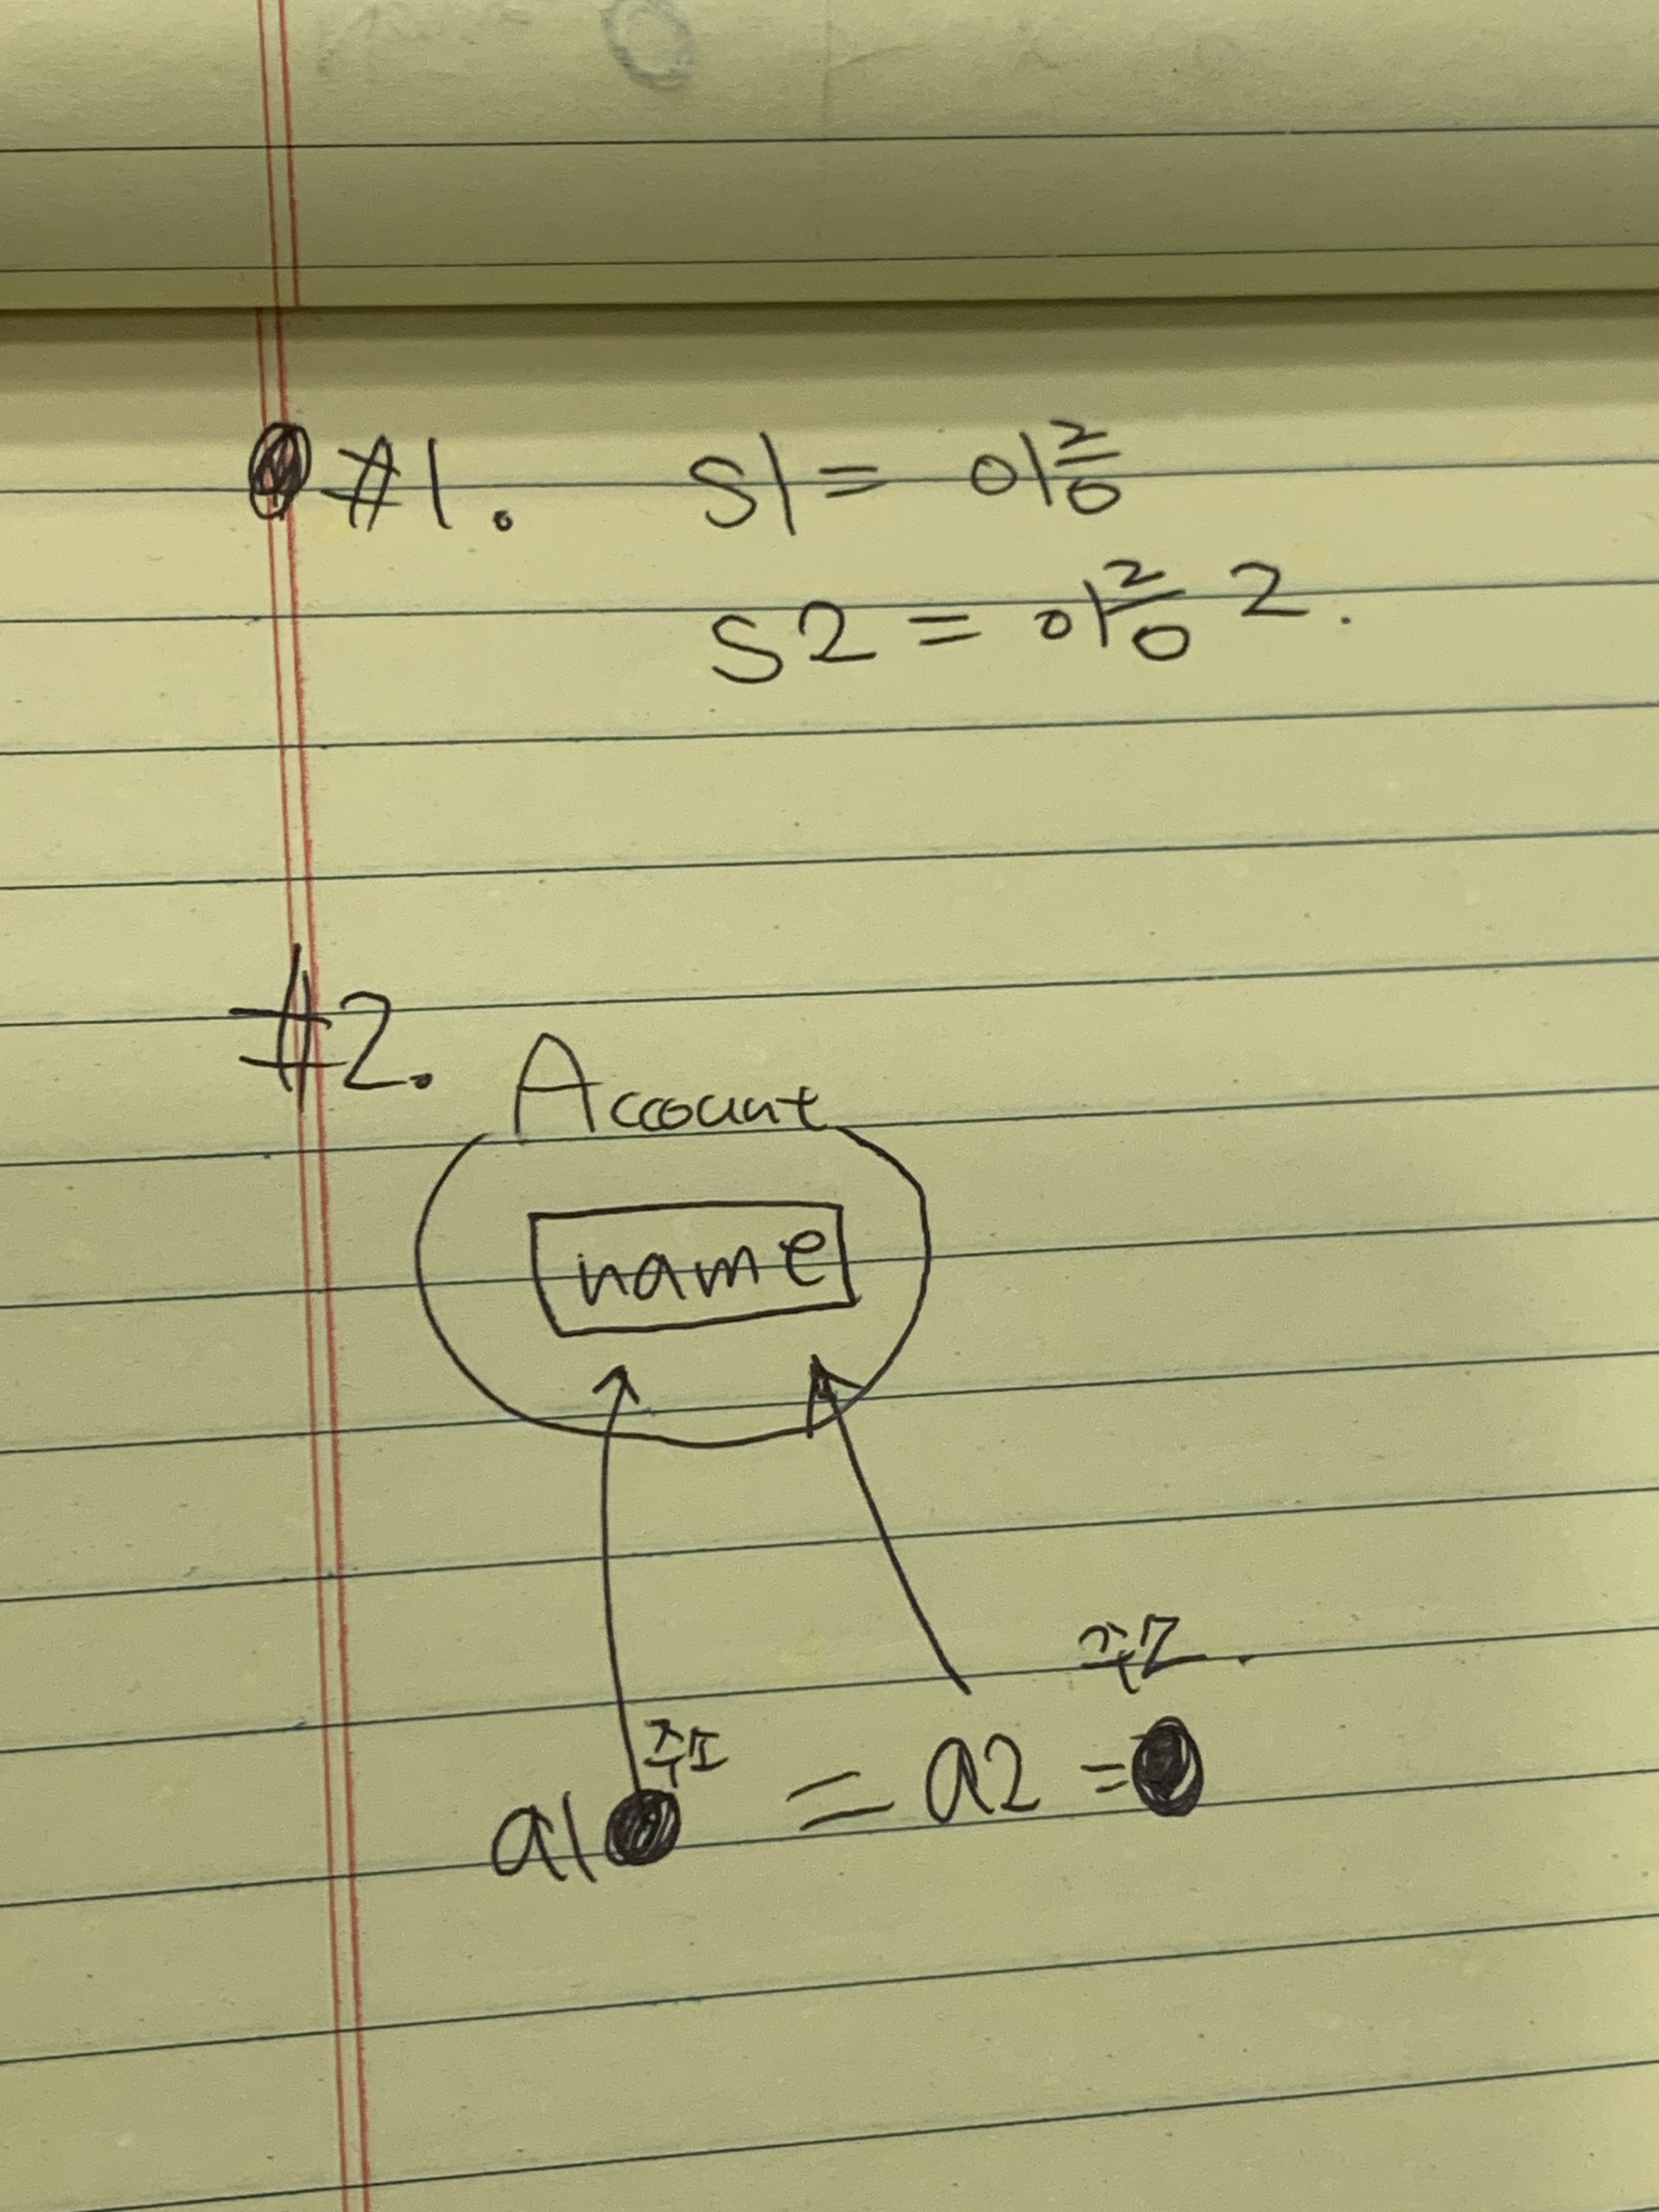 #1. S1 = 이름
S2 = 이름 2.
#2. Account
name
a1 = a2 =